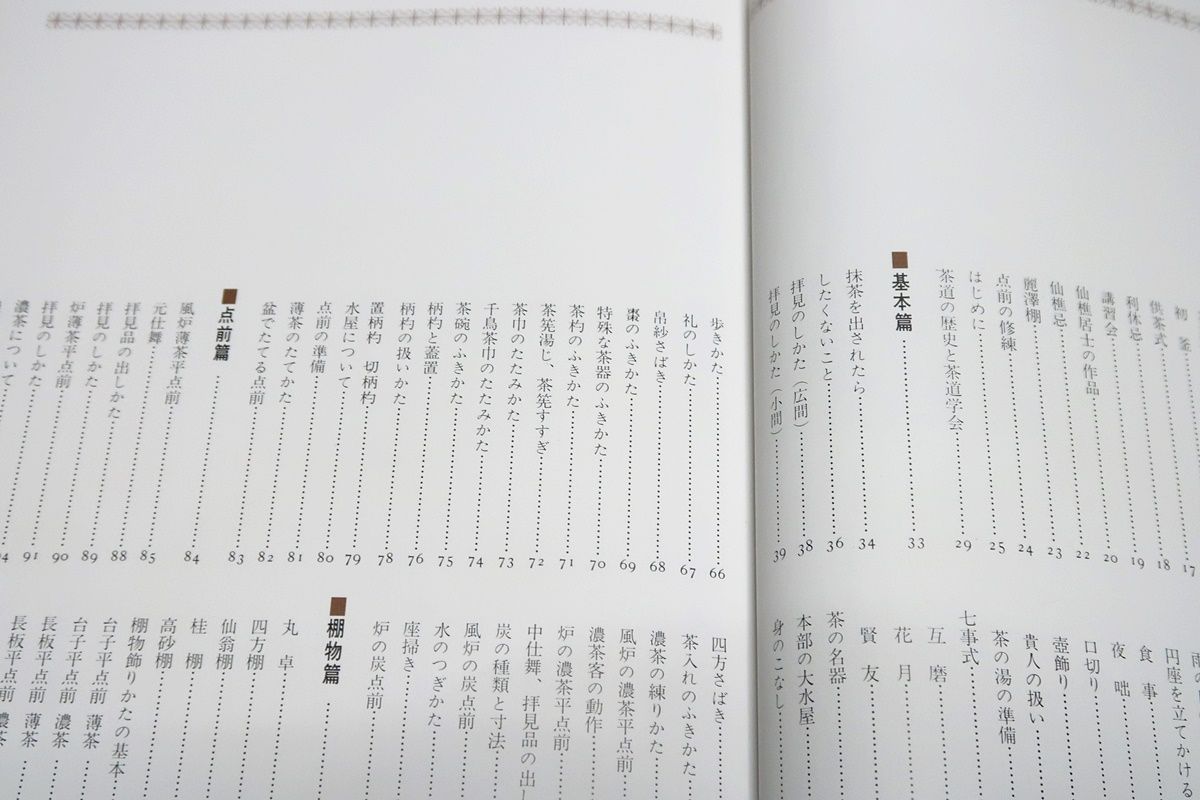 初釜 17
供茶式 18
利休忌 19
講習会 20
仙樵居士の作品 22
仙樵忌 23
麗澤棚 24
点前の修練 25
はじめに
茶道の歴史と茶道学会 29
■基本篇 33
抹茶を出されたら 34
したくないこと 36
拝見のしかた（広間） 38
拝見のしかた（小間） 39
雨の
円座を立てかける
食事
夜咄
口切り
壺飾り
貴人の扱い
茶の湯の準備
七事式
互磨
花月
賢友
茶の名器
本部の大水屋
身のこなし
歩きかた 66
礼のしかた 67
帛紗さばき 68
棗のふきかた 69
特殊な茶器のふきかた 70
茶杓のふきかた 71
茶筅湯じ、茶筅すすぎ 72
茶巾のたたみかた 73
千鳥茶巾のたたみかた 74
茶碗のふきかた 75
柄杓と蓋置 76
柄杓の扱いかた
置柄杓 切柄杓 78
水屋について 79
点前の準備 80
薄茶のたてかた 81
盆でたてる点前 82
■点前篇 83
風炉薄茶平点前 84
元仕舞 85
拝見品の出しかた 88
拝見のしかた 89
炉薄茶平点前 90
拝見のしかた 91
濃茶について 94
四方さばき
茶入れのふきかた
濃茶の練りかた
風炉の濃茶平点前
濃茶客の動作
炉の濃茶平点前
中仕舞、拝見品の出し
炭の種類と寸法
風炉の炭点前
水のつぎかた
座掃き
炉の炭点前
■棚物篇
丸卓
四方棚
仙翁棚
桂棚
高砂棚
棚物飾りかたの基本
台子平点前 薄茶
台子平点前 濃茶
長板平点前 薄茶
長板平点前 濃茶